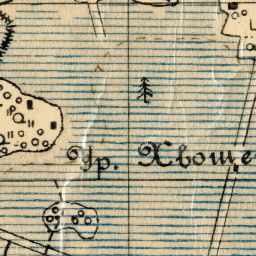 Ур. Хвоще